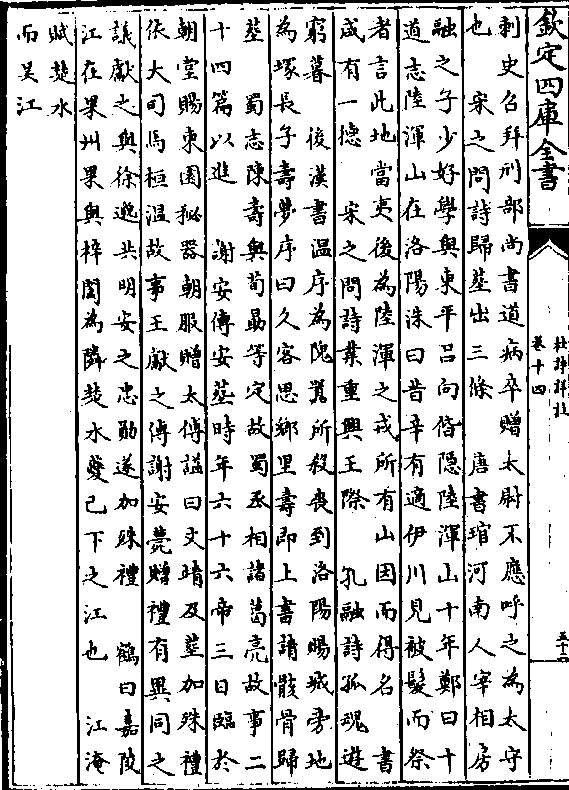 欽定四庫全書
杜詩詳註
卷十四
刺史召拜刑部尚書道病卒贈太尉不應呼之為太守
也　宋之問詩歸塟出三條　唐書琯河南人宰相房
融之子少好學與東平吕向偕隱陸渾山十年鄭曰十
道志陸渾山在洛陽洙曰昔辛有適伊川見被髮而祭
者言此地當夷後為陸渾之戎所有山因而得名　書
咸有一徳　宋之問詩業重興王際　孔融詩孤魂遊
窮暮　後漢書温序為隗囂所殺喪到洛陽賜城旁地
為塚長子壽夢序曰久客思鄉里壽即上書請骸骨歸
塟　蜀志陳壽與荀勗等定故蜀丞相諸葛亮故事二
十四篇以進　謝安傳安薨時年六十六帝三日臨於
朝堂賜東園秘器朝服贈太傅諡曰文靖及塟加殊禮
依大司馬桓温故事王獻之傳謝安薨贈禮有異同之
議獻之與徐邈共明安之忠勛遂加殊禮　鶴曰嘉陵
江在果州果與梓閬為隣楚水䕫已下之江也　江淹
賦楚水
而吳江